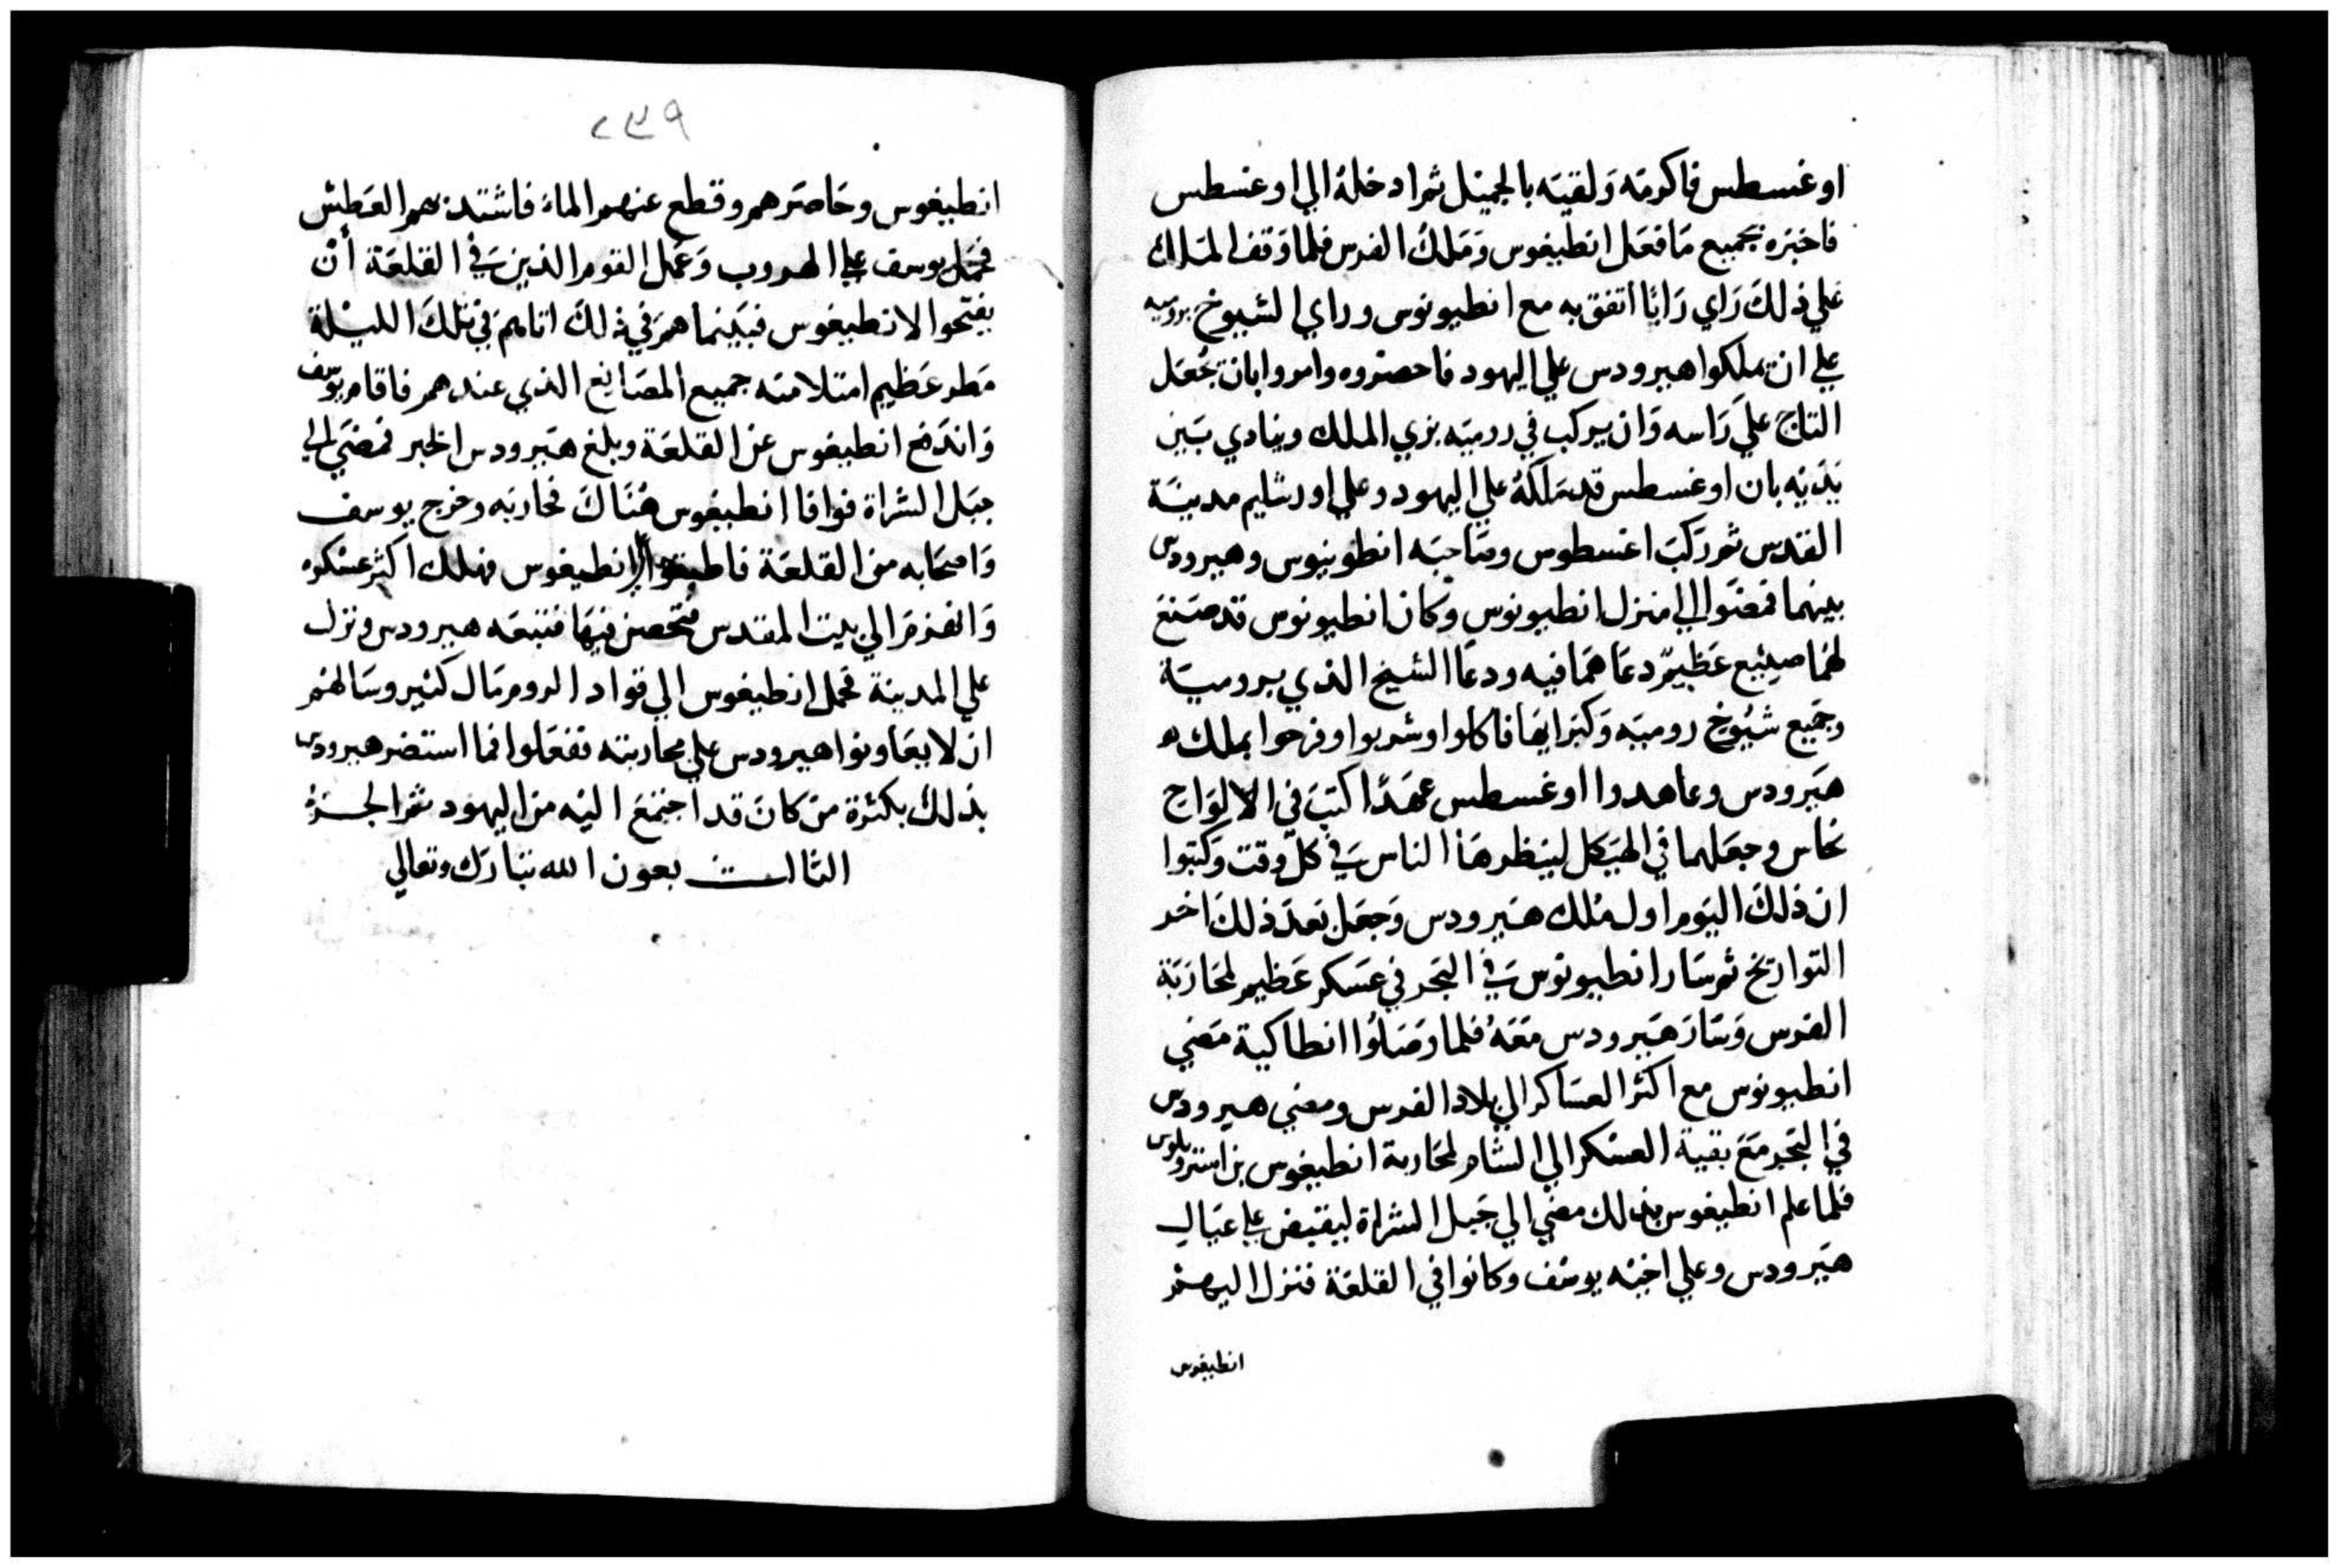 اوغسطس فاكرمه ولقيه بالجميل ثم ادخله الي اوغسطس
فاخبره بجميع ما فعل انطيغوس وملك الفرس فلما وقف الملك
علي ذلك راي رايا اتفق به مع انطيونوس وراي الشيوخ بروميه
علي ان يملكوا هيرودس علي اليهود فاحضروه وامروا بان يجعل
التاج علي راسه وان يركب في روميه بزي الملك وينادي بين
يديه بان اوغسطس قد ملكه علي اليهود وعلي اورشليم مدينة
القدس ثم ركب اغسطوس وصاحبه انطونيوس وهيرودس
بينهما فمضوا الي منزل انطيونوس وكان انطيونوس قد صنع
لهما صنيع عظيم دعاهما فيه ودعا الشيخ الذي برومية
وجميع شيوخ روميه وكبرايها فاكلوا وشربوا وفرحوا بملك
هيرودس وعاهدوا اوغسطس عهدا كتب في الالواح
نحاس وجعلهما في الهيكل لينظرها الناس في كل وقت وكتبوا
ان ذلك اليوم اول ملك هيرودس وجعل بعد ذلك اخر
التواريخ ثم سار انطيونوس في البحر في عسكر عظيم لمحاربة
الفرس وسار هيرودس معه فلما وصلوا انطاكية مضي
انطيونوس مع اكثر العساكر الي بلاد الفرس ومضي هيرودس
في البحر مع بقية العسكر الي الشام لمحاربة انطيغوس بن استروبلوس
فلما علم انطيغوس بذلك مضي الي جبل الشراة ليقبض علي عيال
هيرودس وعلي اخيه يوسف وكانوا في القلعة فنزل اليهم
انطيغوس
٢٣٩
انطيغوس وحاصرهم وقطع عنهم الماء فاشتد بهم العطش
فحمل يوسف علي الهروب وعمل القوم الذين في القلعة أن
يفتحوا لانطيغوس فبينما هم في ذلك اتاهم في تلك الليلة
مطر عظيم امتلا منه جميع المصانع الذي عندهم فاقام يوسف
واندفع انطيغوس عن القلعة وبلغ هيرودس الخبر فمضي الي
جبل الشراة فوافا انطيغوس هناك فحاربه وخرج يوسف
واصحابه من القلعة انطيغوس فهلك اكثر عسكره
وانهزم الي بيت المقدس فتحصن فيها فتبعه هيرودس ونزل
علي المدينة فحمل انطيغوس الي قواد الروم مال كثير وسالهم
ان لا يعاونوا هيرودس علي محاربته ففعلوا فما استضر هيرودس
بذلك بكثرة من كان قد اجتمع اليه من اليهود ثم الجزء
الثالث بعون الله تبارك وتعالي